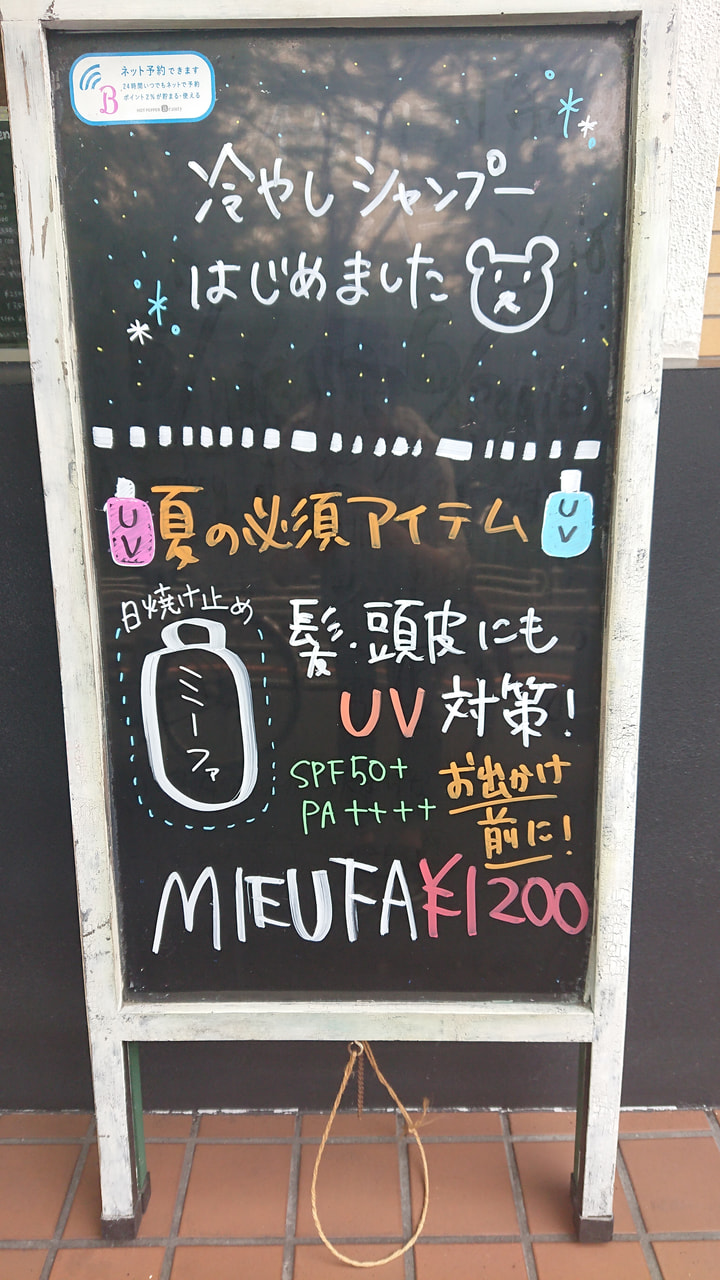 ネット予約できます
24時間いつでもネットで予約
ポイント2%が貯まる・使える
B
冷やしシャンプー
はじめました
UV
夏の必須アイテム
UV
日焼け止め
ミーファ
髪・頭皮にも
UV対策!
SPF50+
PA++++
お出かけ
前に!
MIEUFA ¥1200